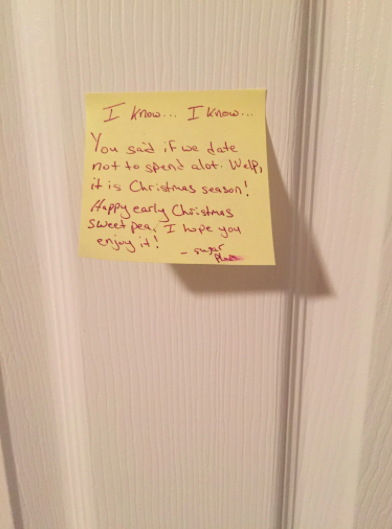 I know... I know...
You said if we date
not to spend alot. Welp,
it is Christmas season!
Happy early Christmas
sweet pea, I hope you
enjoy it!
- sugar